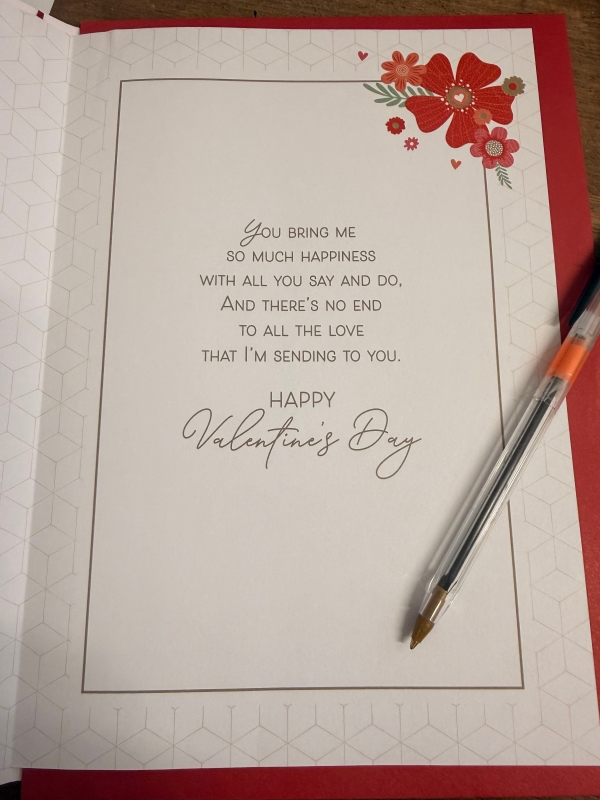 You bring me
so much happiness
with all you say and do,
And there's no end
to all the love
that I'm sending to you.
HAPPY
Valentine's Day